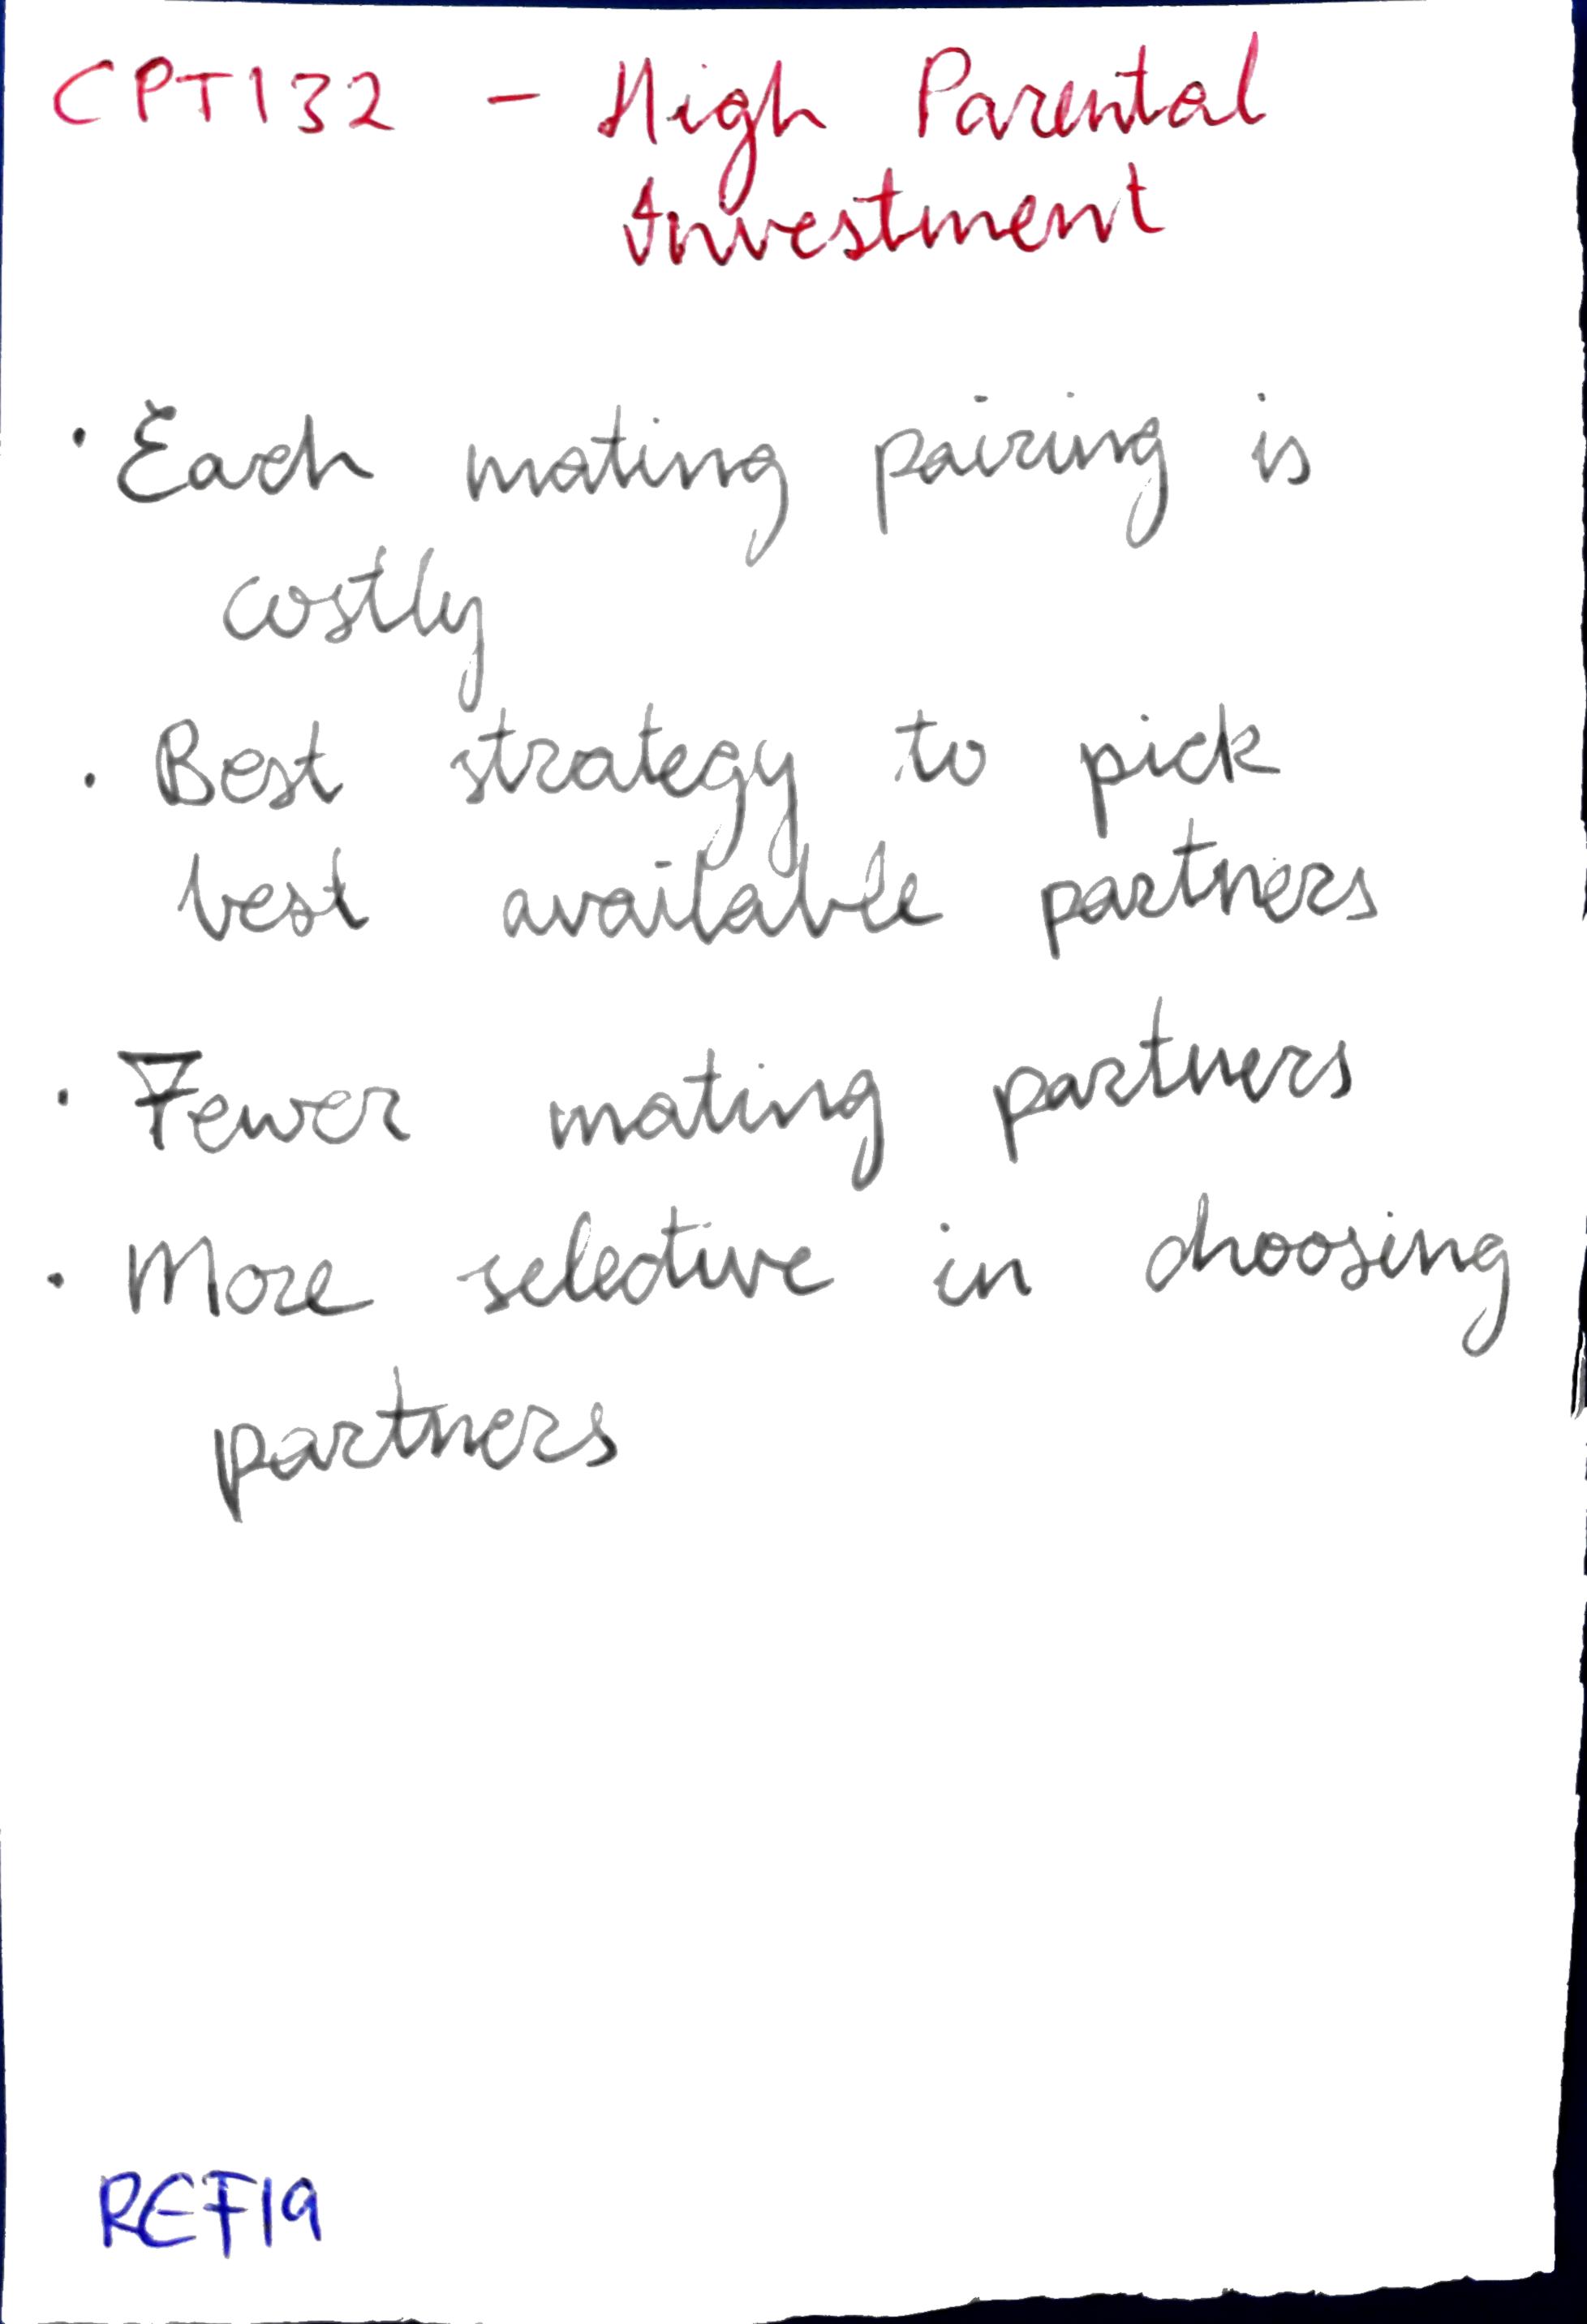 CPT132 - High Parental
Investment
· Each mating pairing is
costly
· Best strategy to pick
best available partners
· Fewer mating partners
· More selective in choosing
partners
REF19